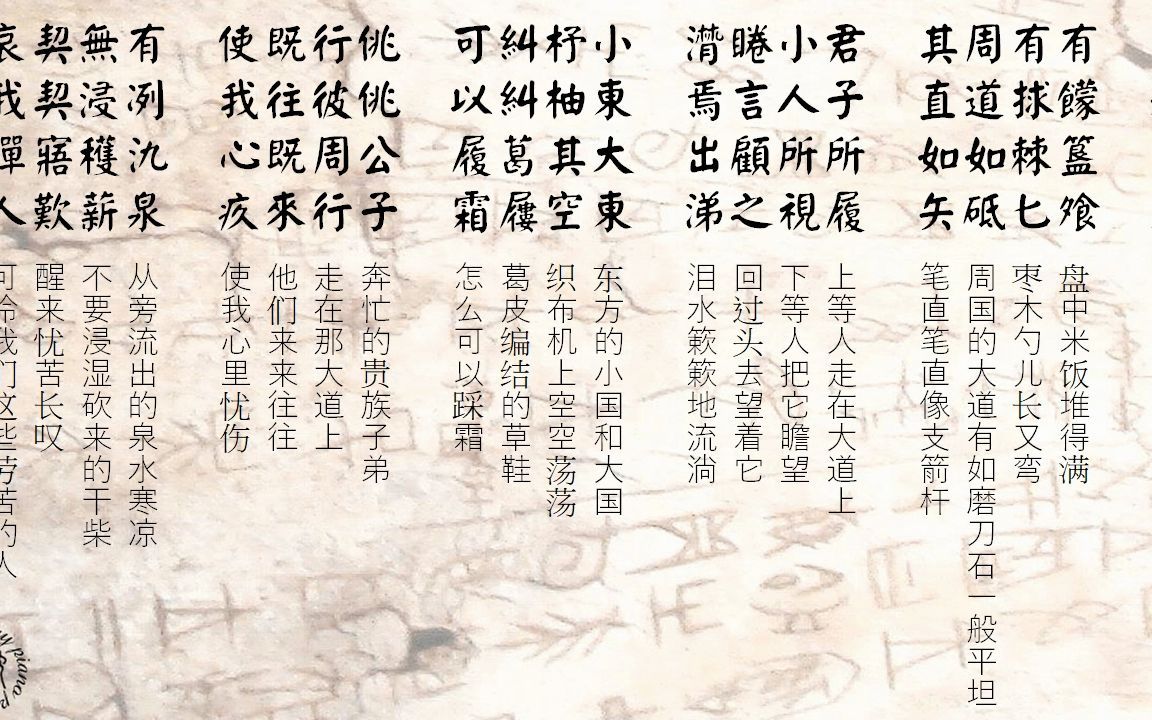 有饛簋飧
有捄棘匕
周道如砥
其直如矢
盘中米饭堆得满
枣木勺儿长又弯
周国的大道有如磨刀石一般平坦
笔直笔直像支箭杆
君子所履
小人所視
睠言顧之
潸焉出涕
上等人走在大道上
下等人把它瞻望
回过头去望着它
泪水簌簌地流淌
小東大東
杼柚其空
糾糾葛屨
可以履霜
东方的小国和大国
织布机上空空荡荡
葛皮编结的草鞋
怎么可以踩霜
佻佻公子
行彼周行
既往既來
使我心疚
奔忙的贵族子弟
走在那大道上
他们来来往往
使我心里忧伤
有冽氿泉
無浸穫薪
契契寤歎
哀我憚人
从旁流出的泉水寒凉
不要浸湿砍来的干柴
醒来忧苦长叹
可怜我们这些劳苦的人
piano